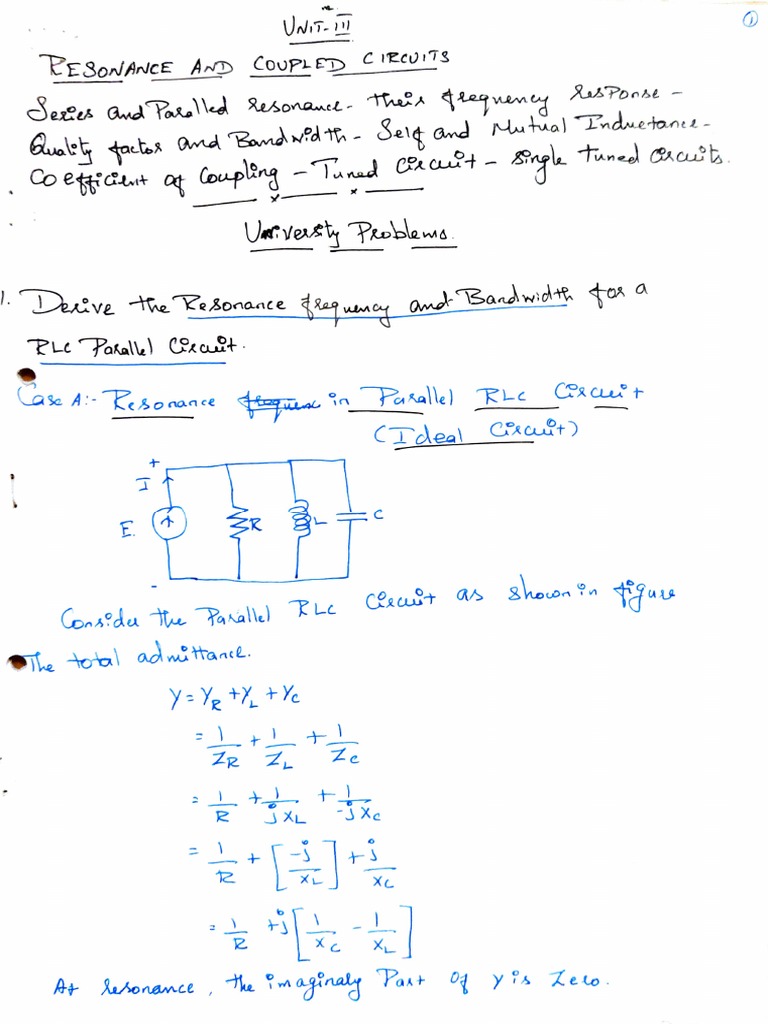 1
UNIT-III
RESONANCE AND COUPLED CIRCUITS
Series and Parallel resonance - their frequency response -
Quality factor and Bandwidth - Self and Mutual Inductance -
Coefficient of Coupling - Tuned circuit - single tuned circuits.
University Problems.
1. Derive the Resonance frequency and Bandwidth for a
RLC Parallel Circuit.
Case A:- Resonance in Parallel RLC Circuit
(Ideal Circuit)
+
I
E
R
L
C
-
Consider the Parallel RLC circuit as shown in figure
The total admittance.
Y = Y_R + Y_L + Y_C
= 1/Z_R + 1/Z_L + 1/Z_C
= 1/R + 1/jX_L + 1/-jX_C
= 1/R + [-j/X_L] + j/X_C
= 1/R + j[1/X_C - 1/X_L]
At resonance, the imaginaly Part of Y is Zero.